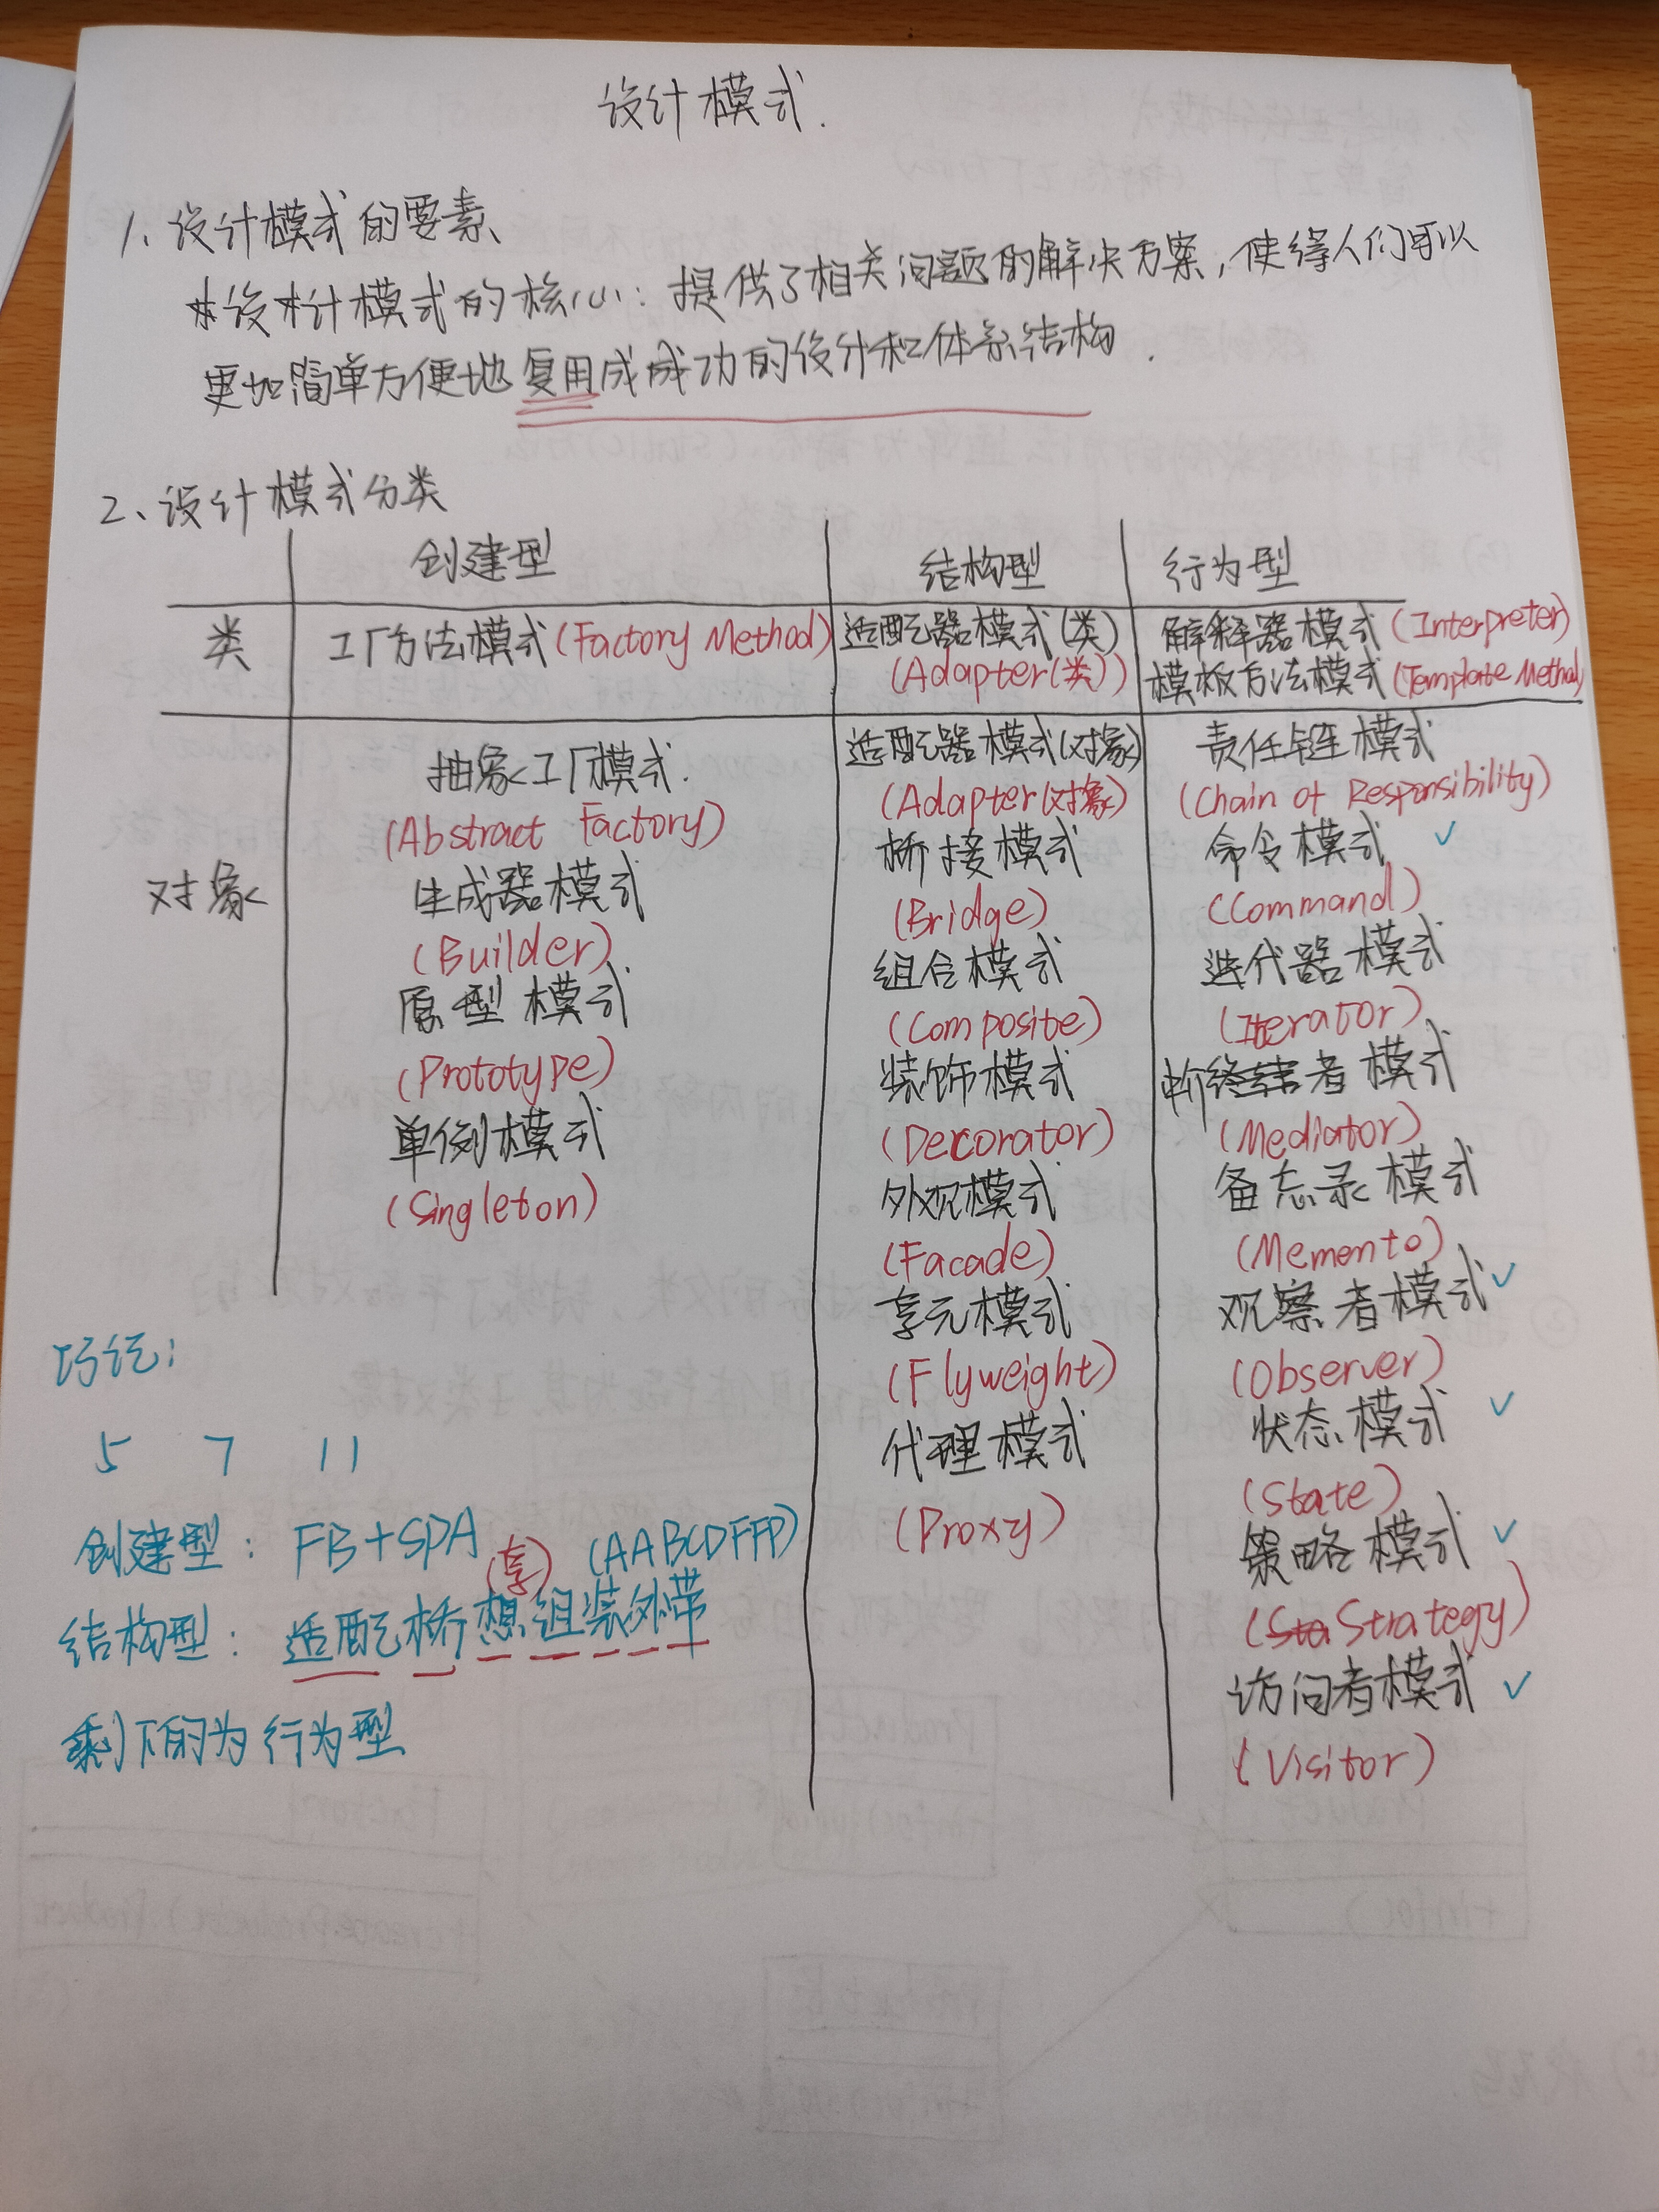 设计模式.
1、设计模式的要素
设计模式的核心：提供了相关问题的解决方案，使得人们可以
更加简单方便地复用成成功的设计和体系结构.
2、设计模式分类
创建型 结构型 行为型
类 工厂方法模式(Factory Method) 适配器模式(类) 解释器模式(Interpreter)
(Adapter(类)) 模板方法模式(Template Method)
适配器模式(对象) 责任链模式
抽象工厂模式. (Adapter(对象) (Chain of Responsibility)
(Abstract Factory) 桥接模式 命令模式 ✓
对象 生成器模式 (Bridge) (Command)
(Builder) 组合模式 迭代器模式
原型模式 (Composite) (Iterator)
(Prototype) 装饰模式 者模式
单例模式 (Decorator) (Mediator)
(Singleton) 外观模式 备忘录模式
(Facade) (Memento)
享元模式 观察者模式 ✓
巧记： (Flyweight) (Observer)
5 7 11 代理模式 状态模式 ✓
(Proxy) (State)
创建型：FB+SPA 策略模式 ✓
(享) (AABCDFFP) (Strategy)
结构型：适配桥想组装外带 访问者模式 ✓
剩下的为行为型 (Visitor)